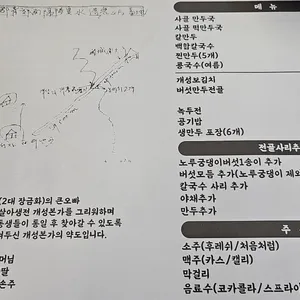 (2대 장금화)의 큰오빠
살아생전 개성본가를 그리워하며
동생들이 통일 후 찾아갈 수 있도록
려두신 개성본가의 약도입니다.
머님
딸
손주
메 뉴
사골 만두국
사골 떡만두국
칼만두
백합칼국수
찐만두(5개)
콩국수(여름)
개성보김치
버섯만두전골
녹두전
공기밥
생만두 포장(6개)
전골사리추
노루궁뎅이버섯1송이 추가
버섯모듬 추가(노루궁뎅이 제외
칼국수 사리 추가
야채추가
만두추가
주
소주(후레쉬/처음처럼)
맥주(카스/켈리)
막걸리
음료수(코카콜라/스프라이